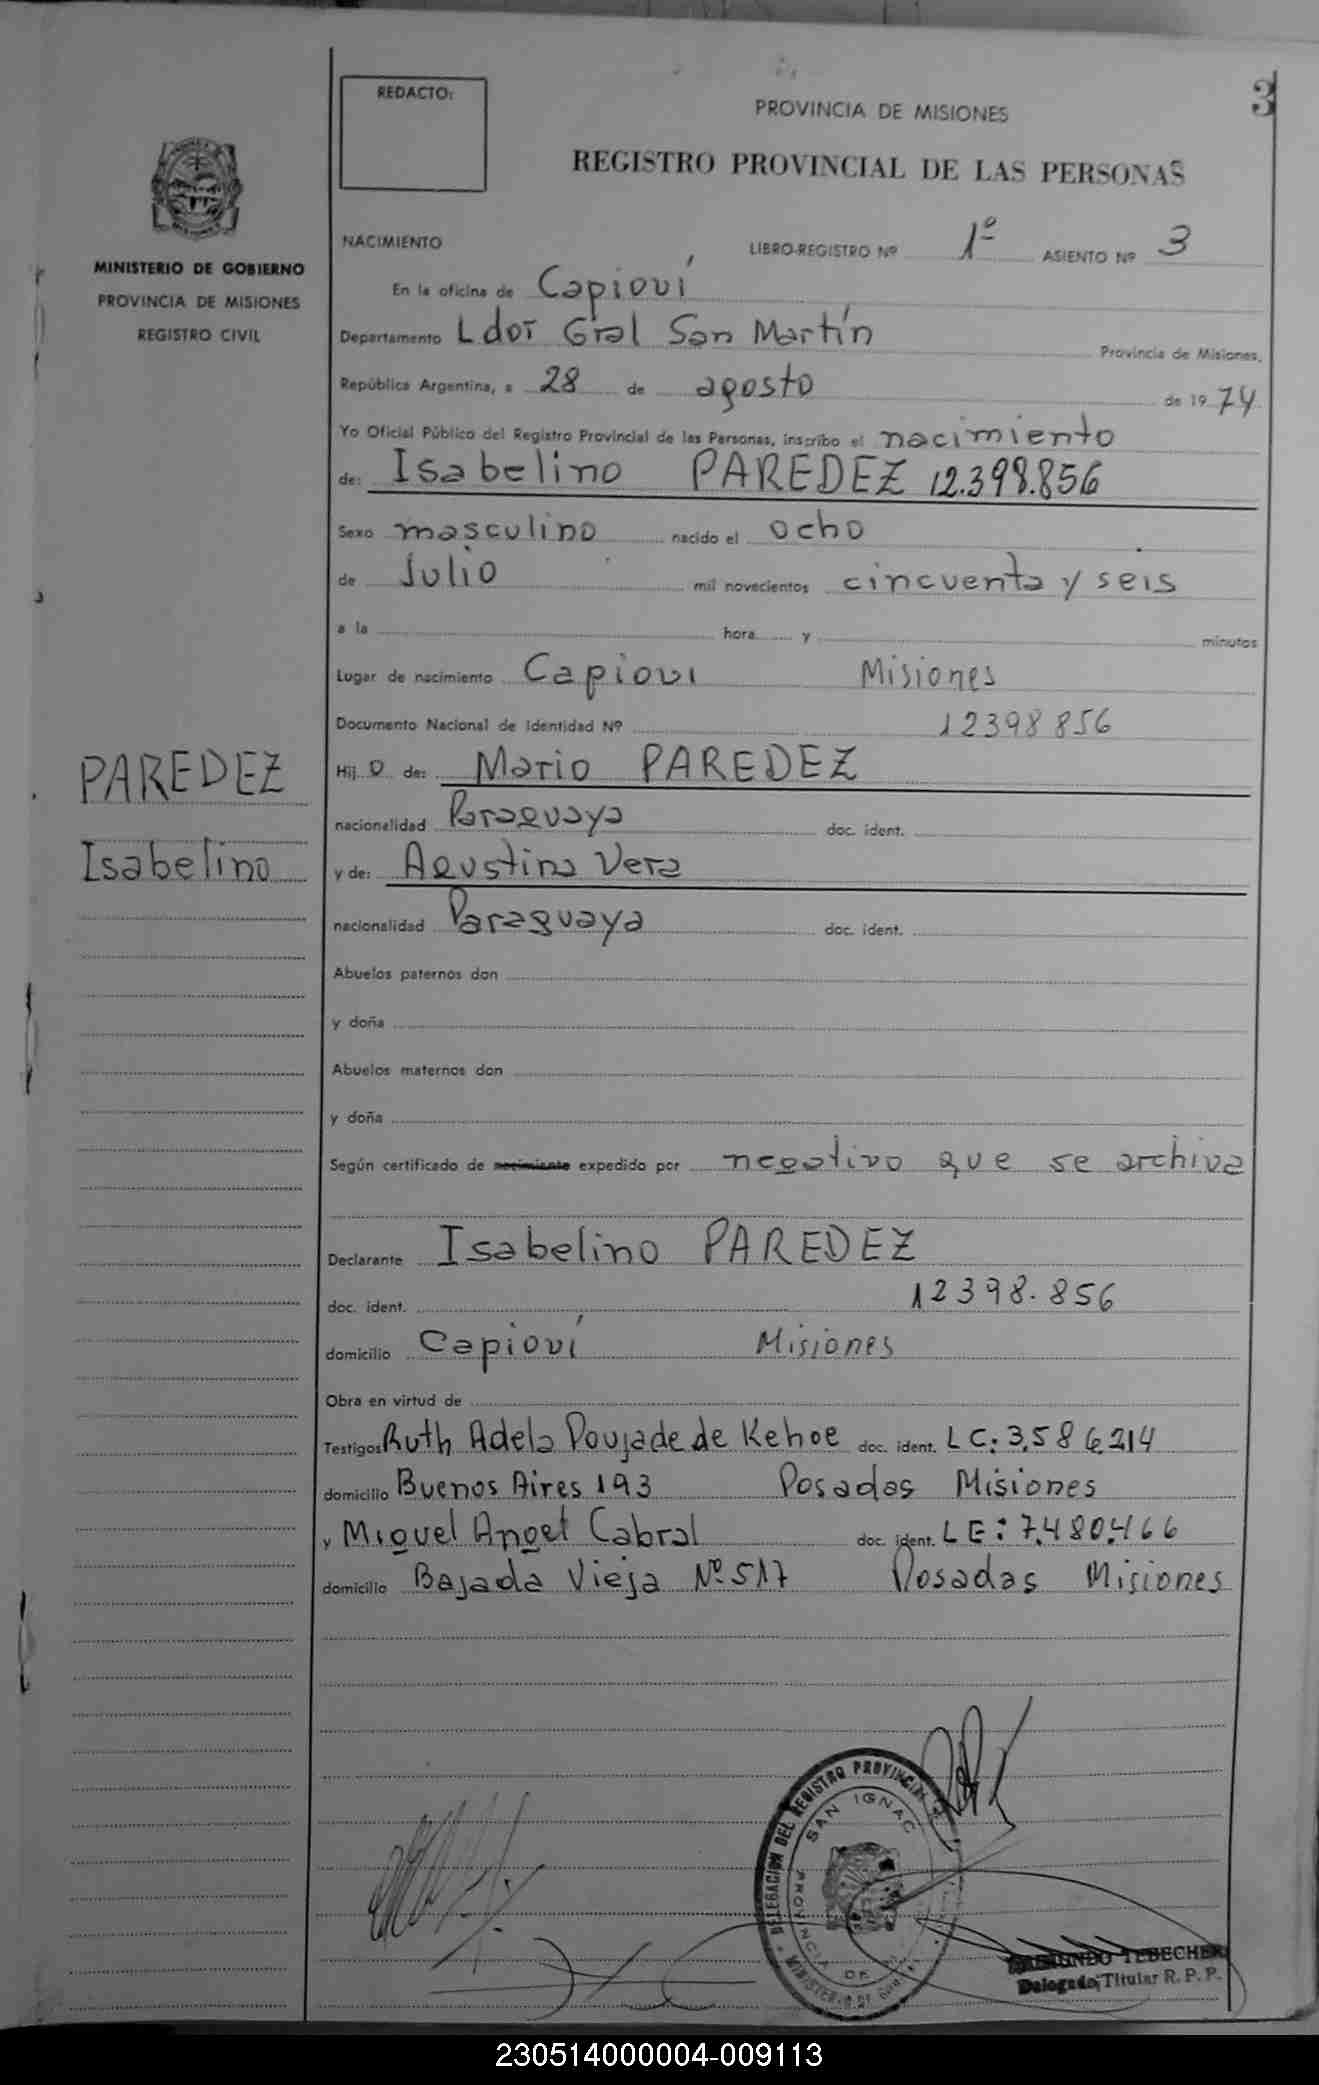 3
REDACTO:
PROVINCIA DE MISIONES
REGISTRO PROVINCIAL DE LAS PERSONAS
MINISTERIO DE GOBIERNO
PROVINCIA DE MISIONES
REGISTRO CIVIL
NACIMIENTO LIBRO-REGISTRO Nº 1º ASIENTO Nº 3
En la oficina de Capioví
Departamento Ldor Gral San Martín Provincia de Misiones,
República Argentina, a 28 de agosto de 19 74
Yo Oficial Público del Registro Provincial de las Personas, inscribo el nacimiento
de: Isabelino PAREDEZ 12.398.856
Sexo masculino nacido el ocho
de Julio mil novecientos cincuenta y seis
a la hora y minutos
Lugar de nacimiento Capiovi Misiones
Documento Nacional de Identidad Nº 12398856
PAREDEZ
Isabelino
Hij o de: Mario PAREDEZ
nacionalidad Paraguaya doc. ident.
y de: Agustina Vera
nacionalidad Paraguaya doc. ident.
Abuelos paternos don
y doña
Abuelos maternos don
y doña
Según certificado de nacimiento expedido por negativo que se archiva
Declarante Isabelino PAREDEZ
doc. ident. 12398.856
domicilio Capioví Misiones
Obra en virtud de
Testigos Ruth Adela Poujade de Kehoe doc. ident. LC: 3.586.214
domicilio Buenos Aires 193 Posadas Misiones
y Miguel Angel Cabral doc. ident. LE: 7.480.466
domicilio Bajada Vieja Nº 517 Posadas Misiones
DELEGACION DEL REGISTRO PROVINCIAL
SAN IGNAC
PROVINCIA DE
MINISTERIO DE
TEBECHER
Delegado Titular R. P. P.
230514000004-009113